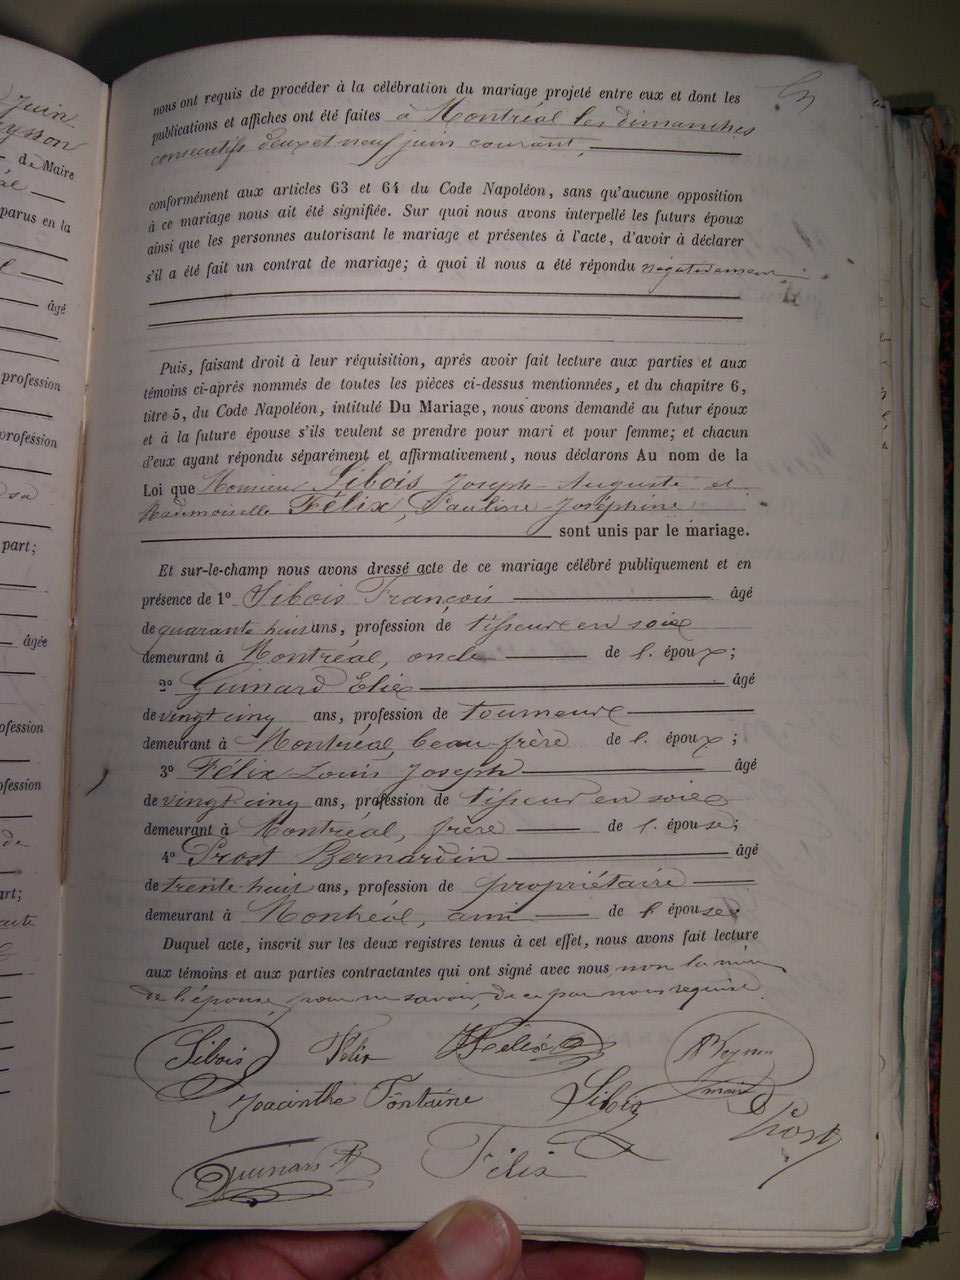 Juin
de Maire
parus en la
âgé
profession
profession
part;
âgée
profession
profession
de
part;
nous ont requis de procéder à la célébration du mariage projeté entre eux et dont les
publications et affiches ont été faites à Montréal les dimanches
consecutifs deux et neuf juin courant,
conformément aux articles 63 et 64 du Code Napoléon, sans qu'aucune opposition
à ce mariage nous ait été signifiée. Sur quoi nous avons interpellé les futurs époux
ainsi que les personnes autorisant le mariage et présentes à l'acte, d'avoir à déclarer
s'il a été fait un contrat de mariage; à quoi il nous a été répondu négativement
Puis, faisant droit à leur réquisition, après avoir fait lecture aux parties et aux
témoins ci-après nommés de toutes les pièces ci-dessus mentionnées, et du chapitre 6,
titre 5, du Code Napoléon, intitulé Du Mariage, nous avons demandé au futur époux
et à la future épouse s'ils veulent se prendre pour mari et pour femme; et chacun
d'eux ayant répondu séparément et affirmativement, nous déclarons Au nom de la
Loi que Monsieur Sibois Joseph-Auguste et
Mademoiselle Félix, Pauline-Joséphine
sont unis par le mariage.
Et sur-le-champ nous avons dressé acte de ce mariage célébré publiquement et en
présence de 1º Sibois François âgé
de quarante huit ans, profession de tisseur en soie
demeurant à Montréal, oncle de l'époux;
2º Guinard Elie âgé
de vingt cinq ans, profession de tourneur
demeurant à Montréal, beau-frère de l'époux;
3º Félix Louis Joseph âgé
de vingt cinq ans, profession de tisseur en soie
demeurant à Montréal, frère de l'épouse;
4º Prost Bernardin âgé
de trente huit ans, profession de propriétaire
demeurant à Montréal, ami de l'épouse.
Duquel acte, inscrit sur les deux registres tenus à cet effet, nous avons fait lecture
aux témoins et aux parties contractantes qui ont signé avec nous non la mère
de l'épouse, pour ne savoir, de ce par nous requise.
Sibois Félix Félix
maire
Hyacinthe Fontaine Sibois
Prost
Guinard
Félix